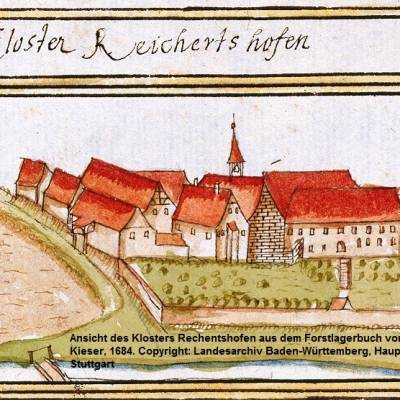 Kloster Reichertshofen
Ansicht des Klosters Rechentshofen aus dem Forstlagerbuch vo
Kieser, 1684. Copyright: Landesarchiv Baden-Württemberg, Haup
Stuttgart